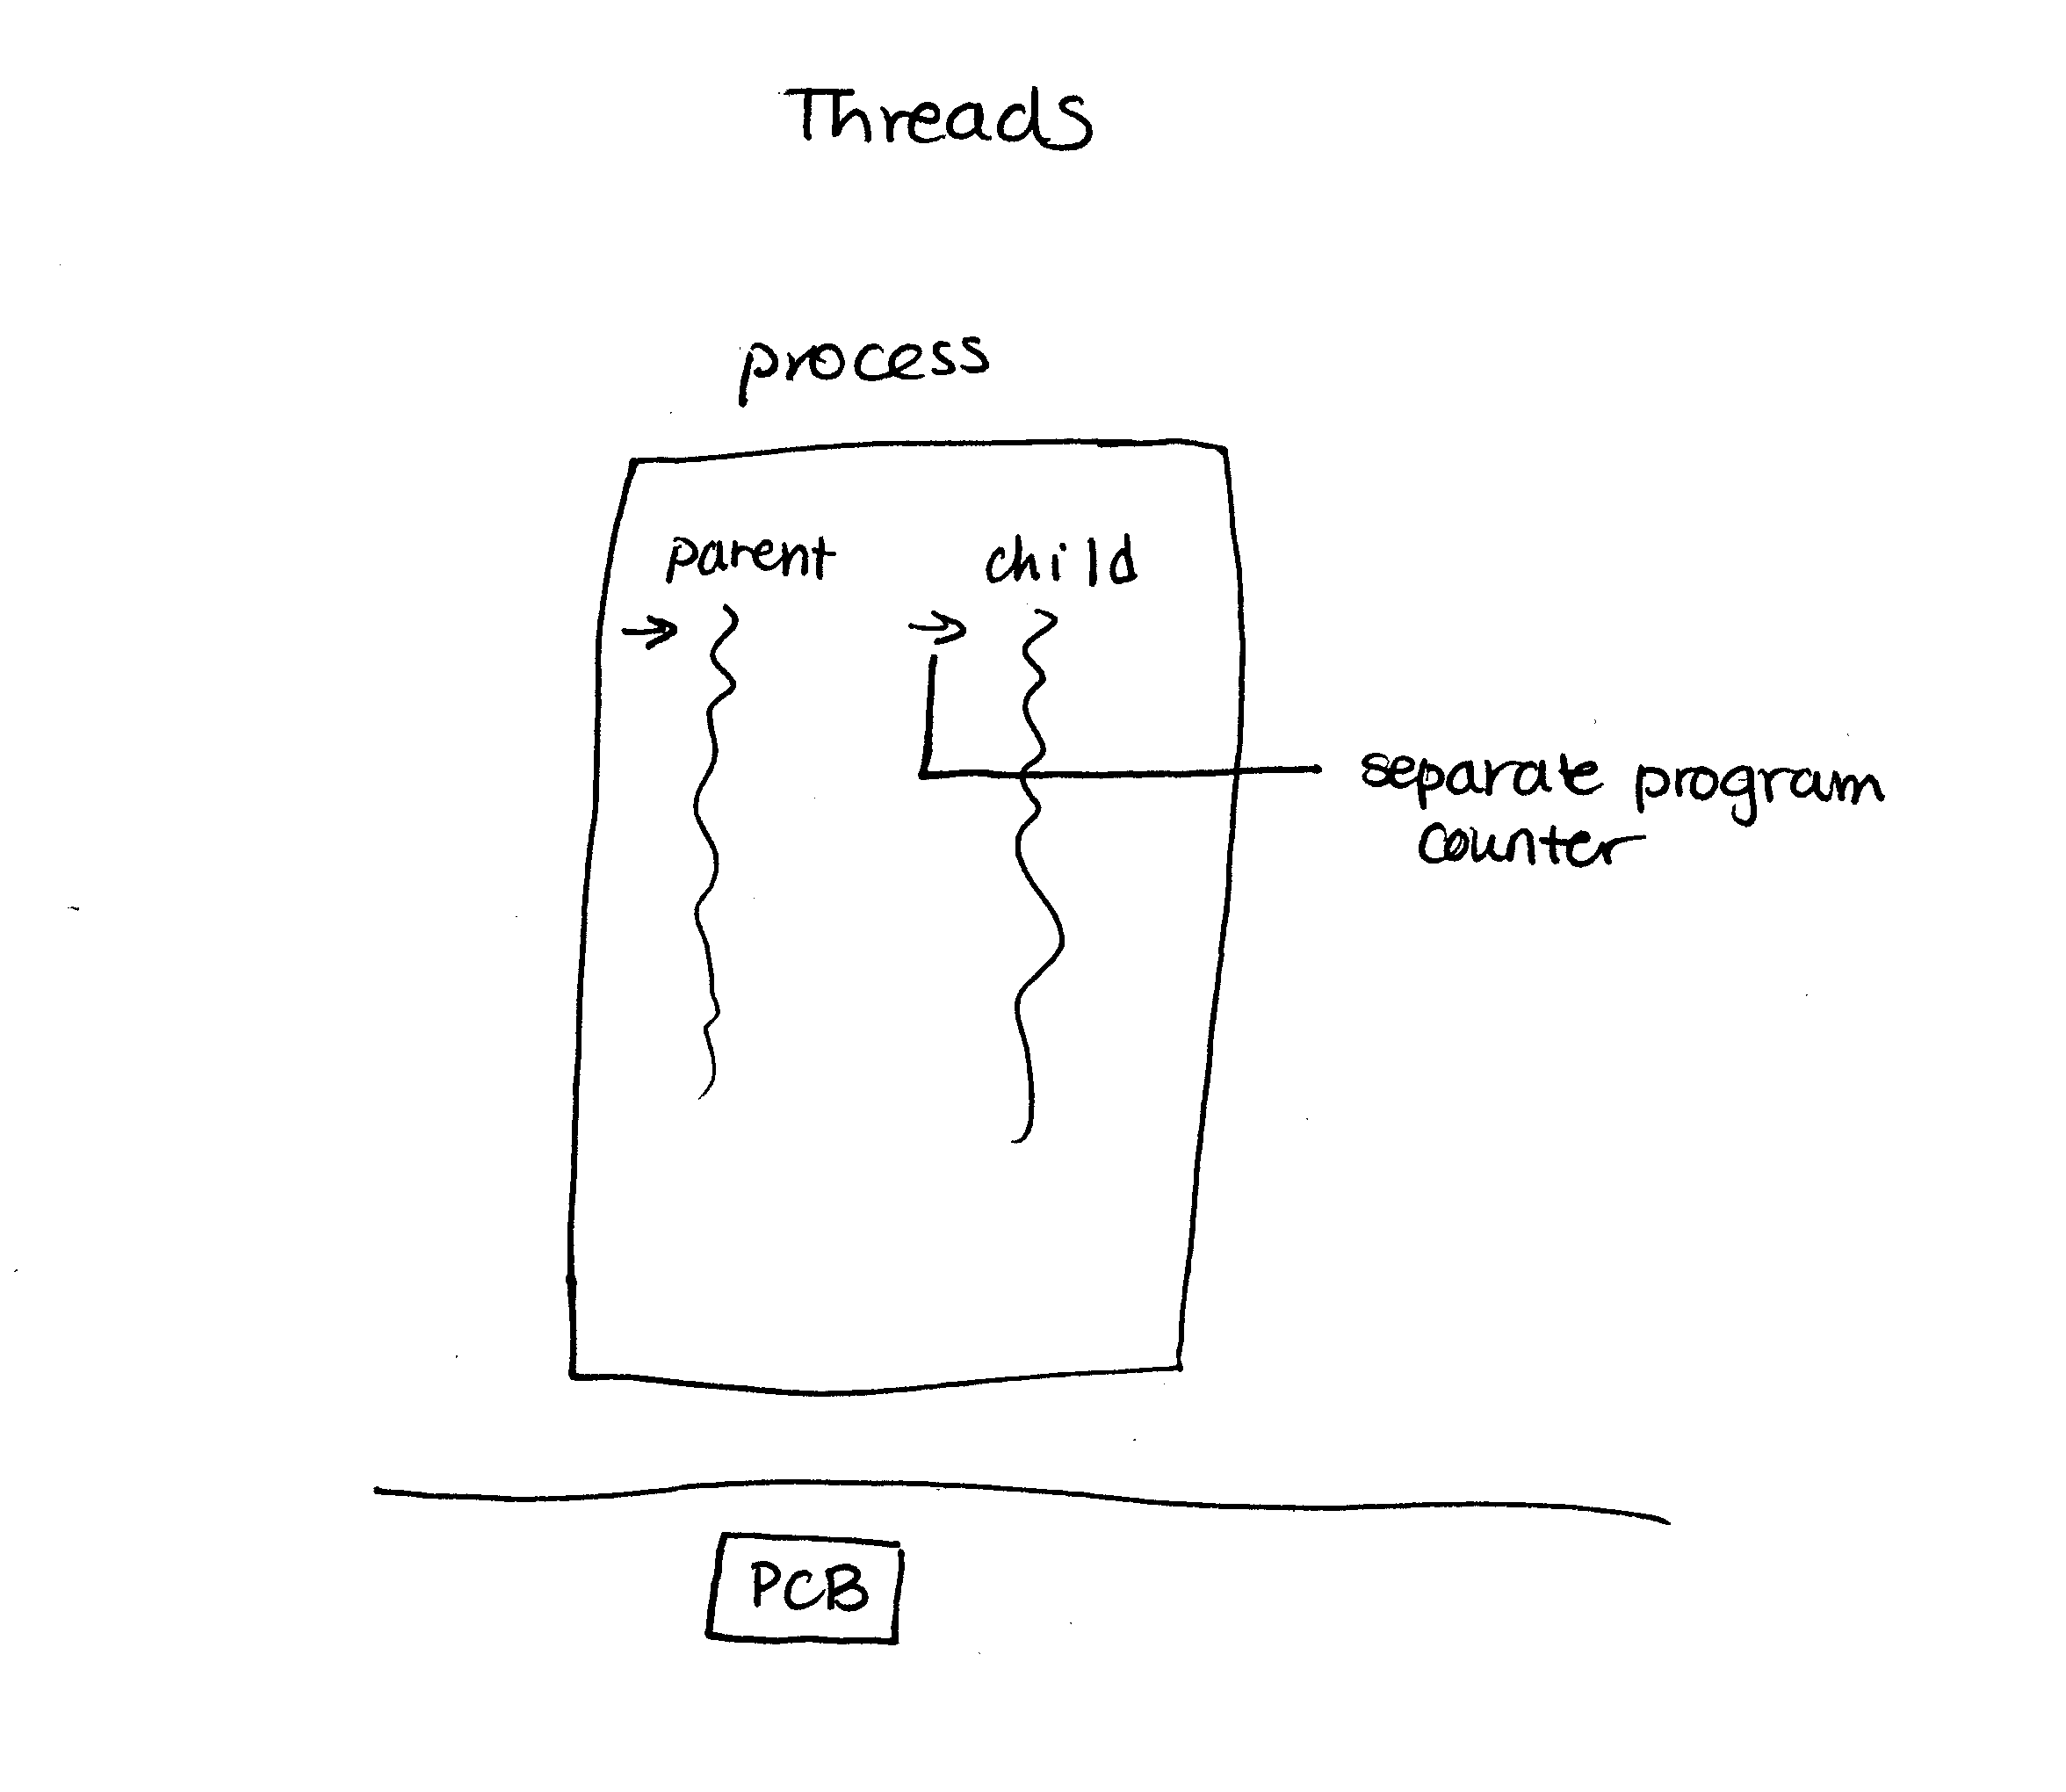 Threads
process
parent
child
separate program
counter
PCB